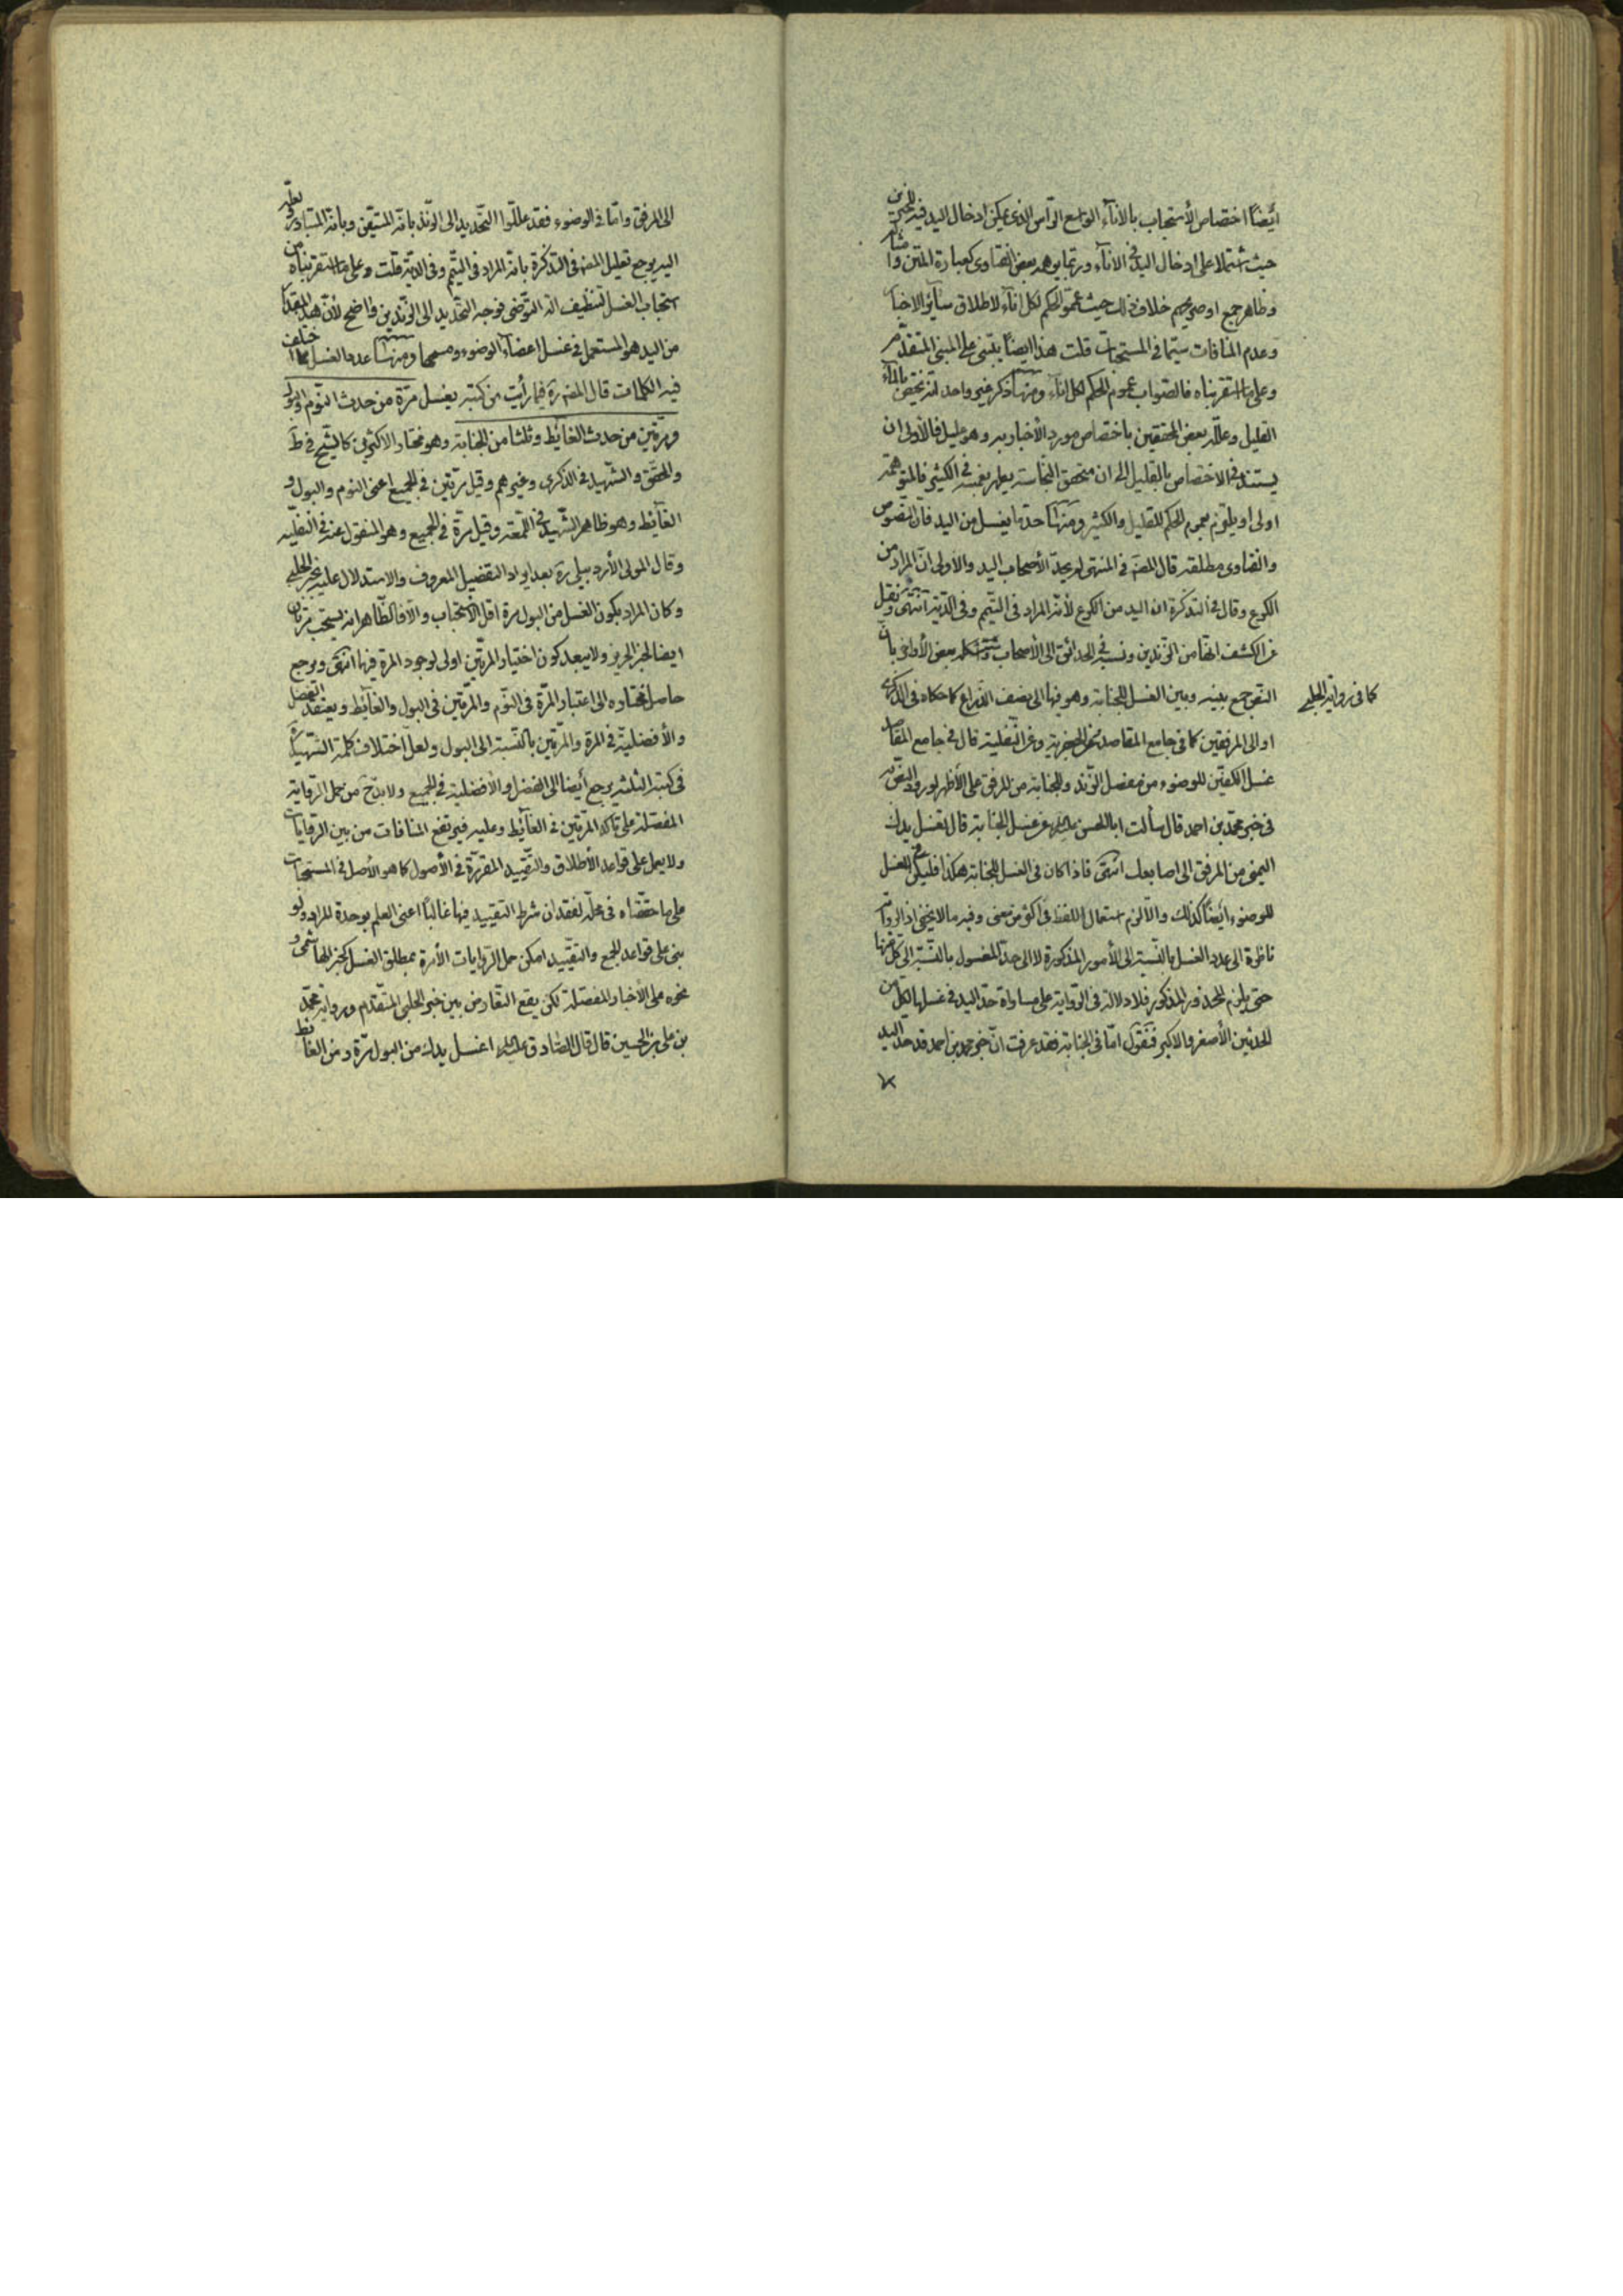 ايضا اختصاص الأستحباب بالأناء الواسع الرأس الذى يمكن ادخال اليد فيه للخبرين
حيث اشتملا على ادخال اليد فى الاناء وربما يوهمه بعض الفتاوى كعبارة المتن وامثاله
وظاهر جمع او صريحهم خلاف ذلك حيث عمموا الحكم لكل اناء لاطلاق سائر الاخبار
وعدم المنافات سيما فى المستحبات قلت هذا ايضا يبتنى على المبنى المتقدم
وعلى ما استقربناه فالصواب عموم الحكم لكل اناء ومنها ذكر غير واحد انه يختص بالماء
القليل وعلله بعض المحققين باختصاص مورد الأخبار به وهو عليل فالأولى ان
يستند فى الاختصاص بالقليل الى ان متحقق النجاسة يطهر بغمسه فى الكثير فالمتوهمة
اولى او يلتزم بعموم الحكم للقليل والكثير ومنها حد ما يغسل من اليد فان النصوص
والفتاوى مطلقة قال المصنف فى المنتهى لم يحد الأصحاب اليد والاولى ان المراد من
الكوع وقال فى التذكرة ان اليد من الكوع لأنه المراد فى التيمم وفى الدية انتهى ونقل
عن الكشف انها من الزندين ونسبه فى الحدائق الى الأصحاب بعض الأواخر بان
النص جمع بينه وبين الغسل للجنابة وهو فيها الى نصف الذراع كما حكاه فى الذكرى
كما فى رواية الحلبى
او الى المرفقين كما فى جامع المقاصد وعن النفلية قال فى جامع المقاصد
غسل الكفين للوضوء من مفصل الزند وللجنابة من المرفق على الأظهر لورود النص به
فى خبر محمد بن احمد قال سألت ابا الحسن عليه السلام عن غسل الجنابة قال تغسل يدك
اليمنى من المرفق الى اصابعك انتهى فاذا كان فى الغسل للجنابة هكذا فليكن الغسل
للوضوء ايضا كذلك والا لزم استعمال اللفظ فى اكثر من معنى وفيه ما لا يخفى اذ الرواية
ناظرة الى عدد الغسل بالنسبة الى الأمور المذكورة لا الى حد المغسول بالنسبة الى كل منها
حتى يلزم المحذور المذكور فلا دلالة فى الرواية على مساواة حد اليد فى غسلها لكل من
الحدثين الأصغر والاكبر فنقول اما فى الجنابة فقد عرفت ان خبر محمد بن احمد قد حد اليد
الى المرفق واما فى الوضوء فقد عللوا التحديد الى الزند بانه المتيقن وبانه المتبادر ولعله
اليه يرجع تعليل المصنف فى التذكرة بانه المراد فى التيمم وفى الدية قلت وعلى ما استقربناه من
استحباب الغسل لتنظيف الة التوضى فوجه التحديد الى الزندين واضح لأن هذا المقدار
من اليد هو المستعمل فى غسل اعضاء الوضوء ومسحها ومنها عدد الغسل مما اختلف
فيه الكلمات قال المصنف ره فيما رأيت من كتبه يغسل مرة من حدث النوم والبول
ومرتين من حدث الغائط وثلثا من الجنابة وهو مختار الاكثرين كالشيخ فى ط
والمحقق والشهيد فى الذكرى وغيرهم وقيل مرتين فى الجميع اعنى النوم والبول و
الغائط وهو ظاهر الشهيد فى اللمعة وقيل مرة فى الجميع وهو المنقول عنه فى النفلية
وقال المولى الأردبيلى ره بعد ايراد التفصيل المعروف والاستدلال عليه بخبر الحلبى
وكان المراد بكون الغسل من البول مرة اقل الاستحباب والا فالظاهر انه يستحب مرتان
ايضا لخبر الحريز ولا يبعد كون اختيار المرتين اولى لوجود المرة فيها انتهى ويرجع
حاصل مختاره الى اعتبار المرة فى النوم والمرتين فى البول والغائط ويعتقد الفضل
والأفضلية فى المرة والمرتين بالنسبة الى البول ولعل اختلاف كلمة الشهيد ره
فى كتبه الثلثة يرجع أيضا الى الفضل والأفضلية فى الجميع ولا بد ح من حمل الرواية
المفصلة على تاكد المرتين فى الغائط وعليه فيرتفع المنافات من بين الروايات
ولا يعمل على قواعد الأطلاق والتقييد المقررة فى الأصول كما هو الأصل فى المستحبات
على ما حققناه فى محله لفقدان شرط التقييد فيها غالبا اعنى العلم بوحدة المراد ولو
بنى على قواعد الجمع والتقييد امكن حمل الروايات الأمرة بمطلق الغسل كخبر الهاشمى و
نحوه على الأخبار المفصلة لكن يقع التعارض بين خبر الحلبى المتقدم ورواية محمد
بن على بن الحسين قال قال الصادق عليه السلام اغسل يدك من البول مرة ومن الغائط